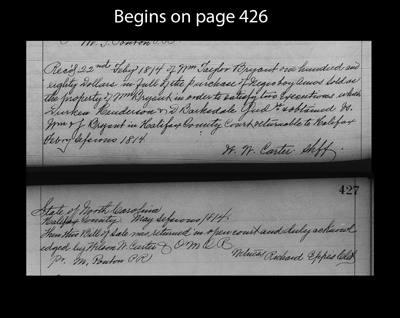 Begins on page 426
W. J. Ponton P.R.
Recd 22nd Feby 1814 of Wm Taylor Bryant one hundred and
eighty Dollars in full of the purchase of Negro boy Amos sold as
the property of Wm Bryant in order to satisfy two Executions which
Henderson & Barksdale obtained vs.
Wm & J Bryant in Halifax County Court returnable to Halifax
Febry Sessions 1814.
W. W. Carter. Shff.
427
State of North Carolina
Halifax County May Sessions, 1814.
Then this Bill of Sale was returned in open court and duly acknowl
edged by Wilson W. Carter & O M C R
Pr. M, Ponton P.R. Witness Richard Eppes Clk